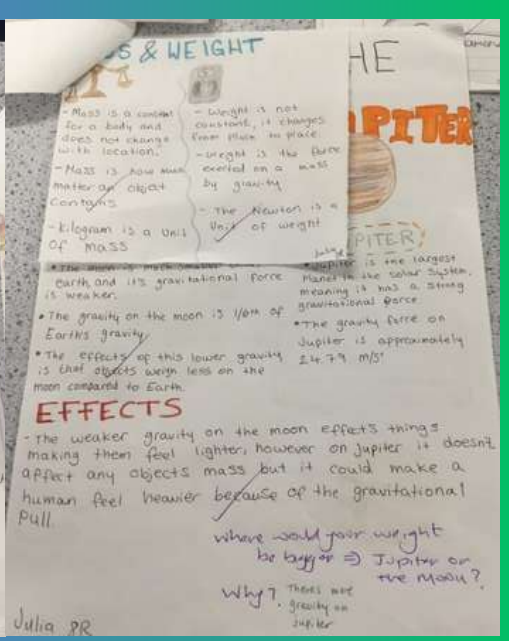 & WEIGHT
- Mass is a constant
for a body and
does not change
with location.
- Mass is how much
matter an object
contains
- Kilogram is a unit
of mass
- Weight is not
constant, it changes
from place to place.
- Weight is the force
exerted on a mass
by gravity
- The Newton is a
Unit of weight
HE
PITER
PITER)
earth and it's gravitational force
is weaker.
• The gravity on the moon is 1/6th of
Earth's gravity.
• The effects of this lower gravity
is that objects weigh less on the
moon compared to Earth.
• Jupiter is the largest
Planet in the solar system,
meaning it has a strong
gravitational force
• The gravity force on
Jupiter is approximately
24.79 m/s²
EFFECTS
- The weaker gravity on the moon effects things
making them feel lighter, however on Jupiter it doesn't
affect any objects mass but it could make a
human feel heavier because of the gravitational
Pull.
Where would your weight
be bigger ⇒ Jupiter or
the Moon?
Why? Theres more
gravity on
Jupiter
Julia 8R